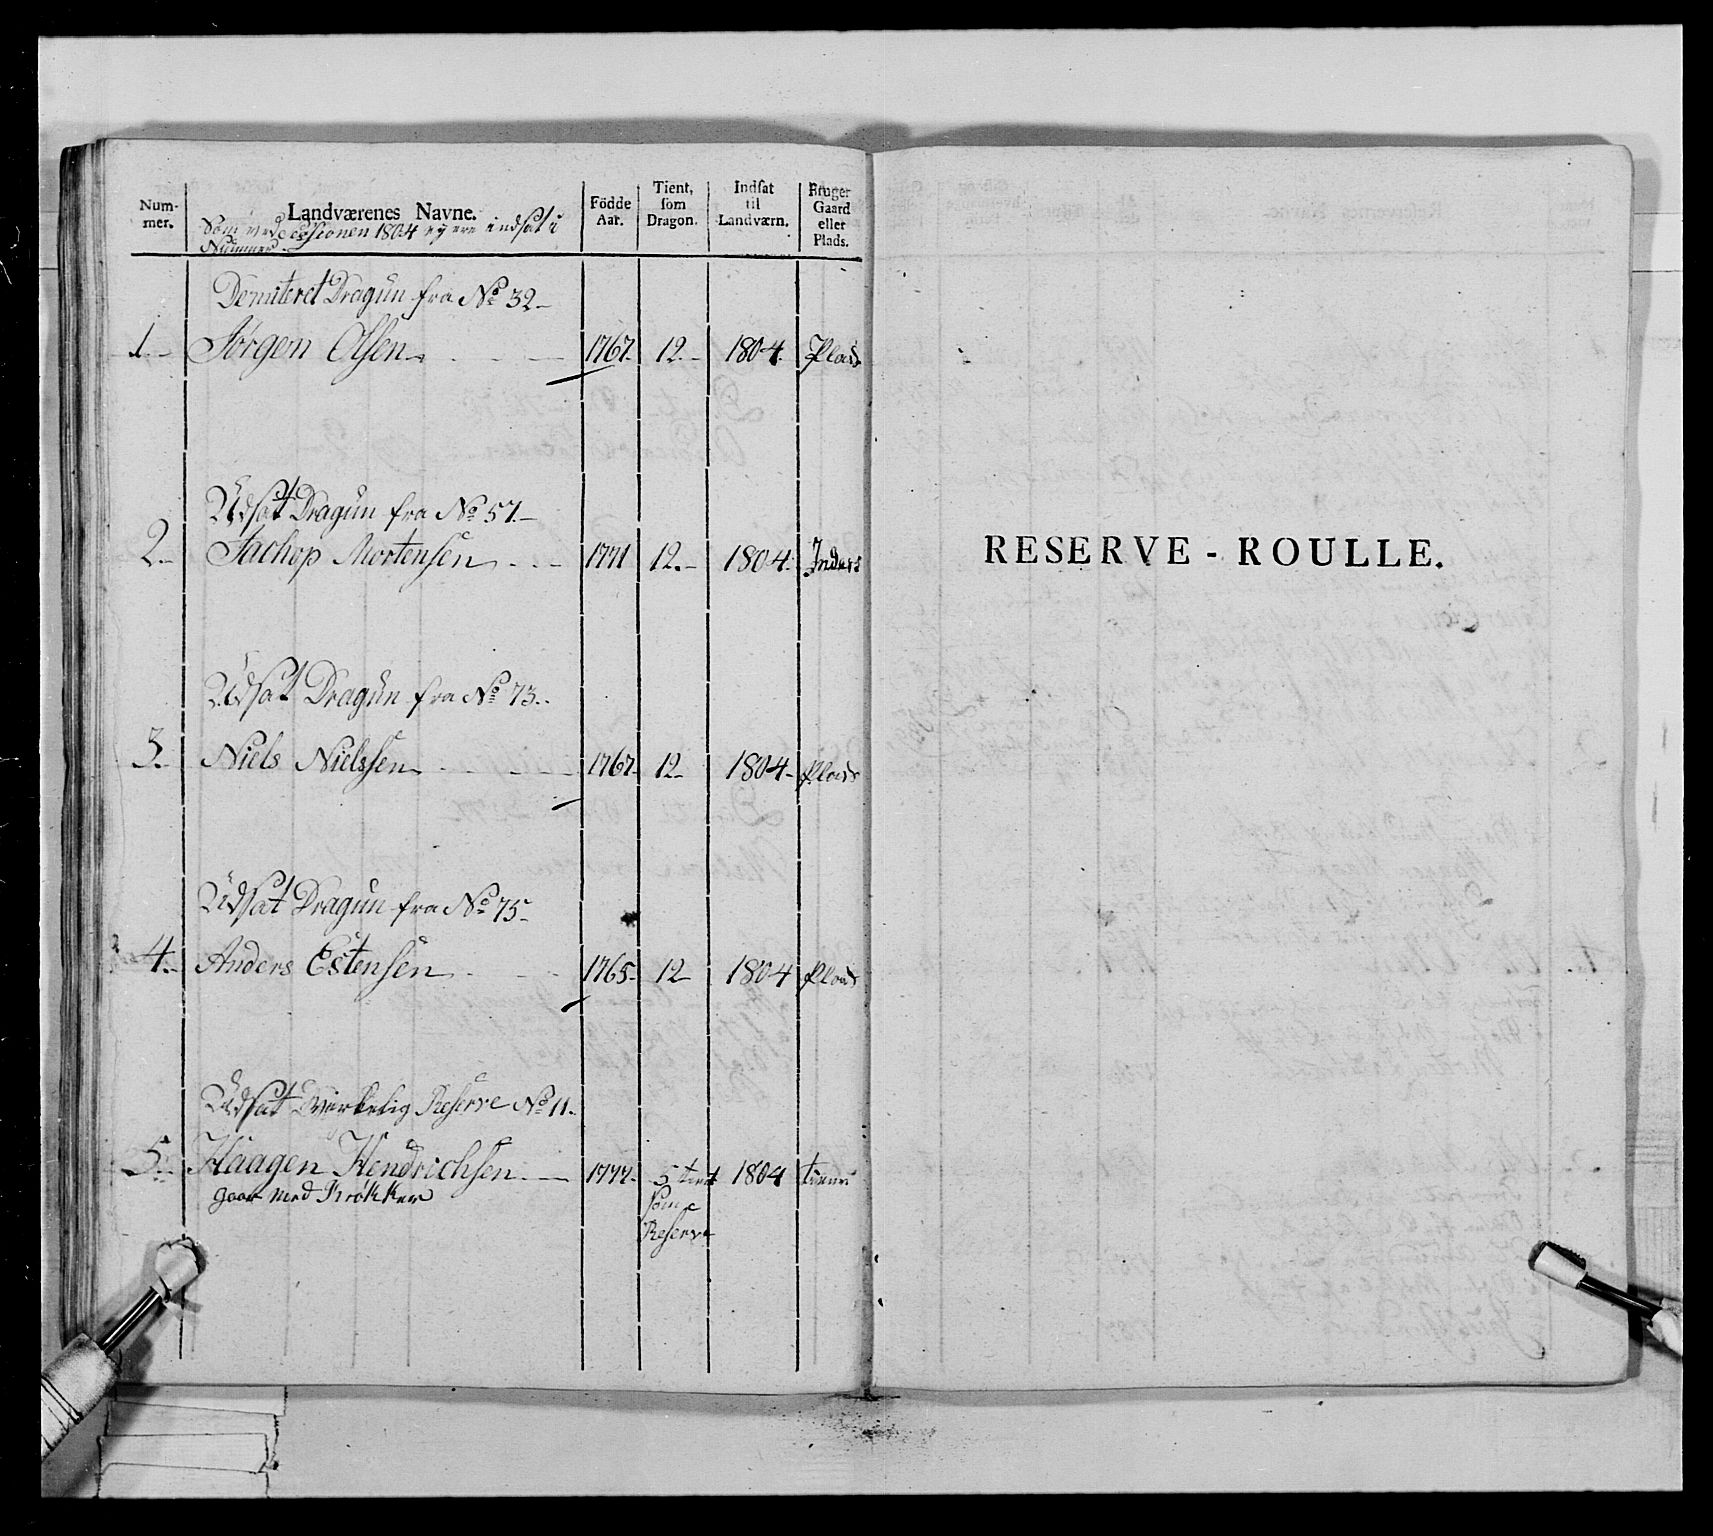 Num-
mer.
Landværenes Navne.
Som ved Sessionen 1804 ey ere indsat i
Nummer.
Födde
Aar.
Tient,
som
Dragon.
Indsat
til
Landværn.
Bruger
Gaard
eller
Plads.
Demiteret Dragun fra No 32-
1.- Jørgen Olsen 1767. 12.- 1804. Plads
Udsat Dragun fra No 57.-
2.- Jachop Mortensen 1771 12.- 1804. Inders
Udsat Dragun fra No 73.
3.- Niels Nielssen 1767. 12- 1804- Plads
Udsat Dragun fra No 75-
4.- Anders Estensen 1765- 12- 1804 Plads
Udsat Virkelig Reserve No 11.
5. Haagen Hendrichsen 1777. 5 tient 1804
gaar med Krøkker som
Reserve
RESERVE - ROULLE.